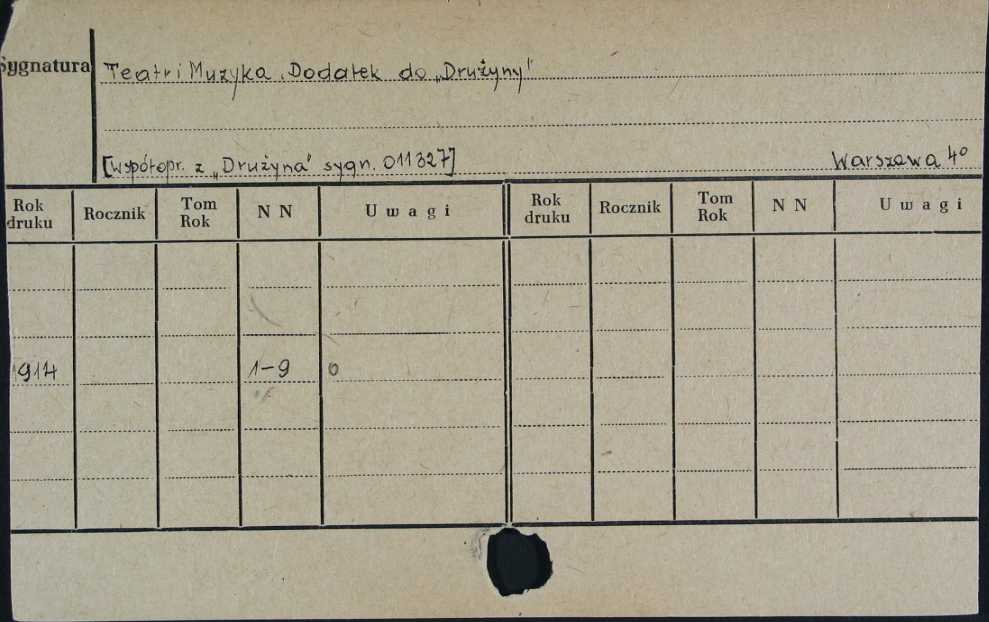 Sygnatura Teatr i Muzyka. Dodatek do „Drużyny"
[współopr. z „Drużyna" sygn. 011327] Warszawa 4⁰
Rok druku Rocznik Tom Rok N N Uwagi Rok druku Rocznik Tom Rok N N Uwagi
1914 1-9 0